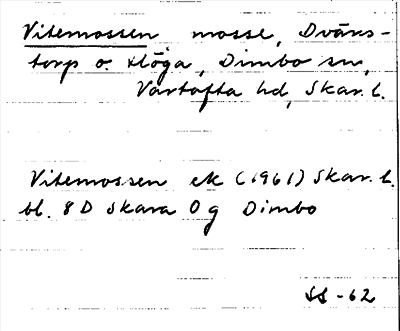 Vitemossen mosse, Dvärs-
torp o. Höga, Dimbo sn,
Vartofta hd, Skar. l.
Vitemossen ek (1961) Skar. l.
bl. 8 D Skara 0 g Dimbo
SS -62